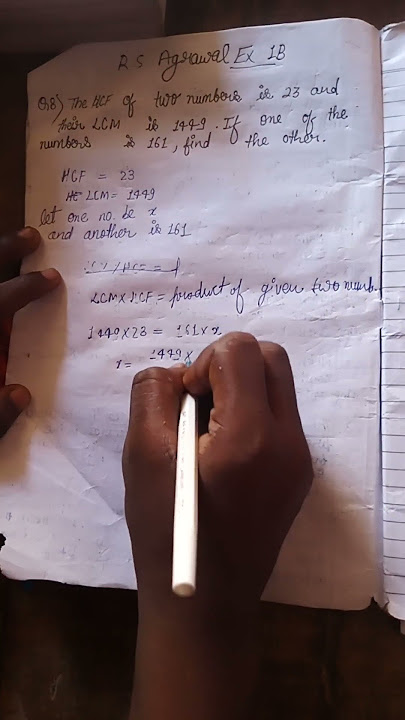 R S Agrawal Ex 1B
Q8) The HCF of two numbers is 23 and
their LCM is 1449. If one of the
numbers is 161, find the other.
HCF = 23
LCM = 1449
let one no. be x
and another is 161
LCM X HCF = product of given two numb
1449 X 23 = 161 X x
x = 1449 X